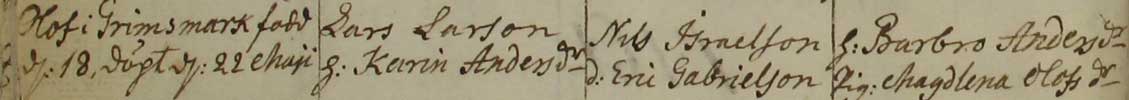 Olof i Grimsmark född
d: 18, döpt d: 22 Maji
Lars Larson
h: Karin Anders dr
Nils Israelson
d: Eric Gabrielson
h: Barbro Anders dr
Pig: Magdlena Olofs dr